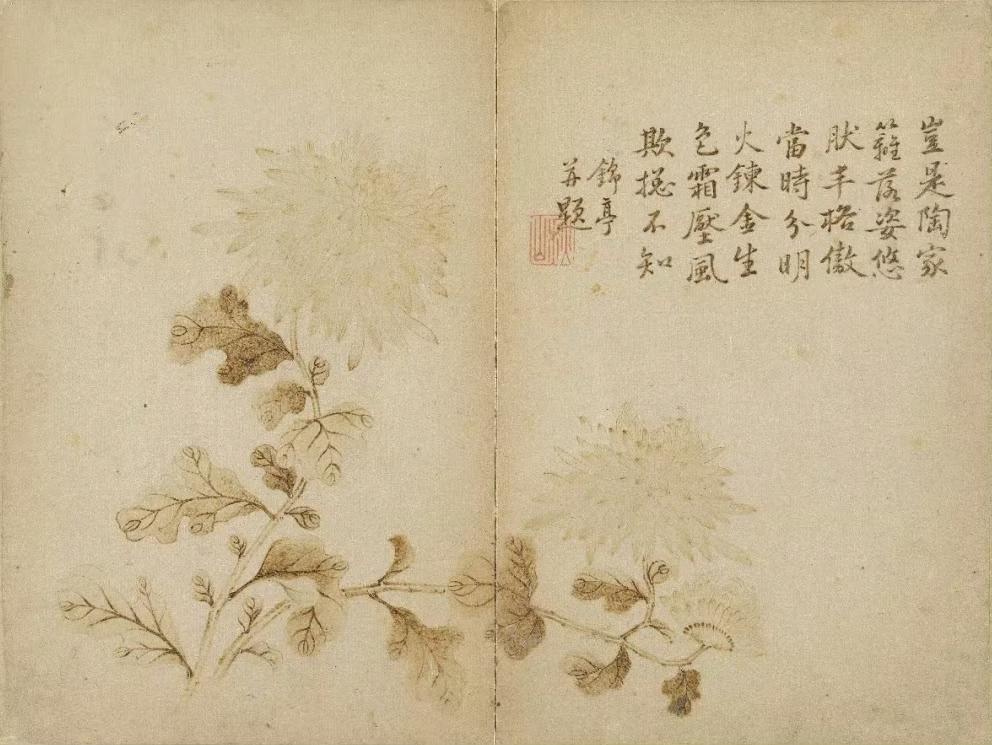 豈是陶家
籬落姿悠
肰丰格傲
當時分明
火鍊金生
色霜壓風
欺揔不知
錦亭
并題